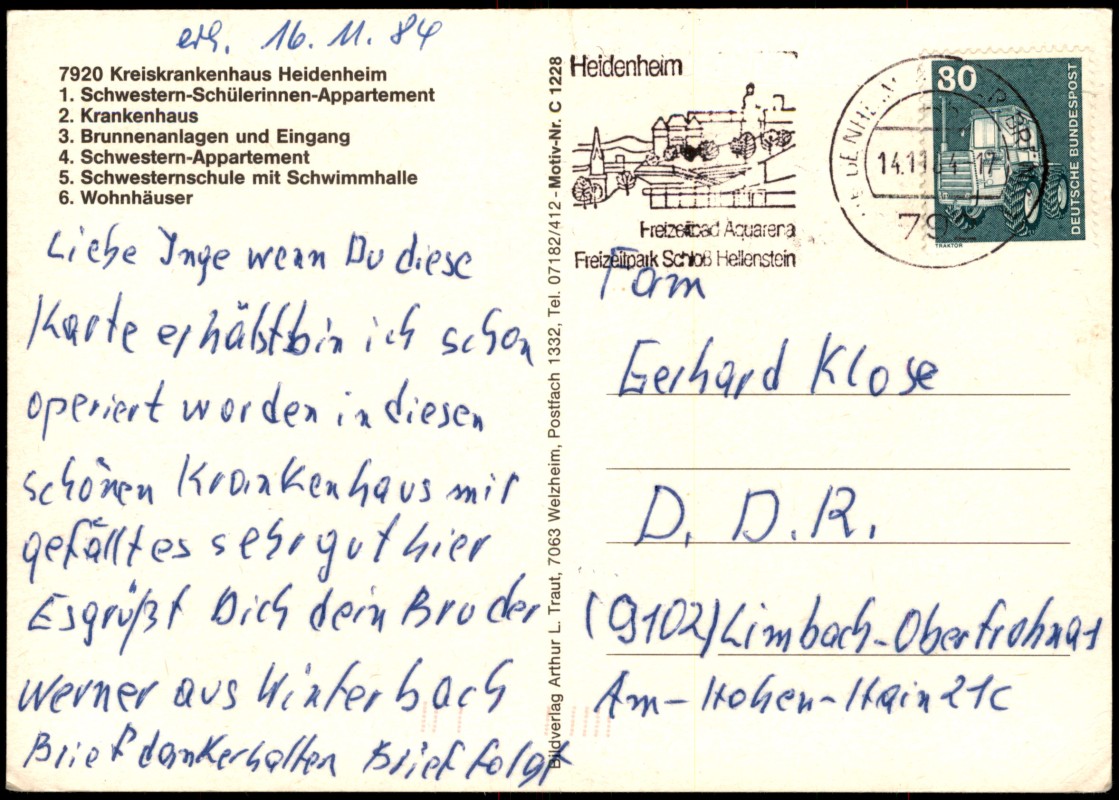 erh. 16. 11. 84
7920 Kreiskrankenhaus Heidenheim
1. Schwestern-Schülerinnen-Appartement
2. Krankenhaus
3. Brunnenanlagen und Eingang
4. Schwestern-Appartement
5. Schwesternschule mit Schwimmhalle
6. Wohnhäuser
Liebe Inge wenn Du diese
Karte erhälst bin ich schon
operiert worden in diesen
schönen Krankenhaus mir
gefällt es sehr gut hier
Es grüßt Dich dein Bruder
Werner aus Winterbach
Brief dankerhalten Brief folgt
Bildverlag Arthur L. Traut, 7063 Welzheim, Postfach 1332, Tel. 07182/412 - Motiv-Nr. C 1228
Heidenheim
Freizeitbad Aquarena
Freizeitpark Schloß Hellenstein
14.11.84-17
792
80
DEUTSCHE BUNDESPOST
TRAKTOR
Fam
Gerhard Klose
D. D. R.
(9102) Limbach-Oberfrohna 1
Am-Hohen-Hain 21c